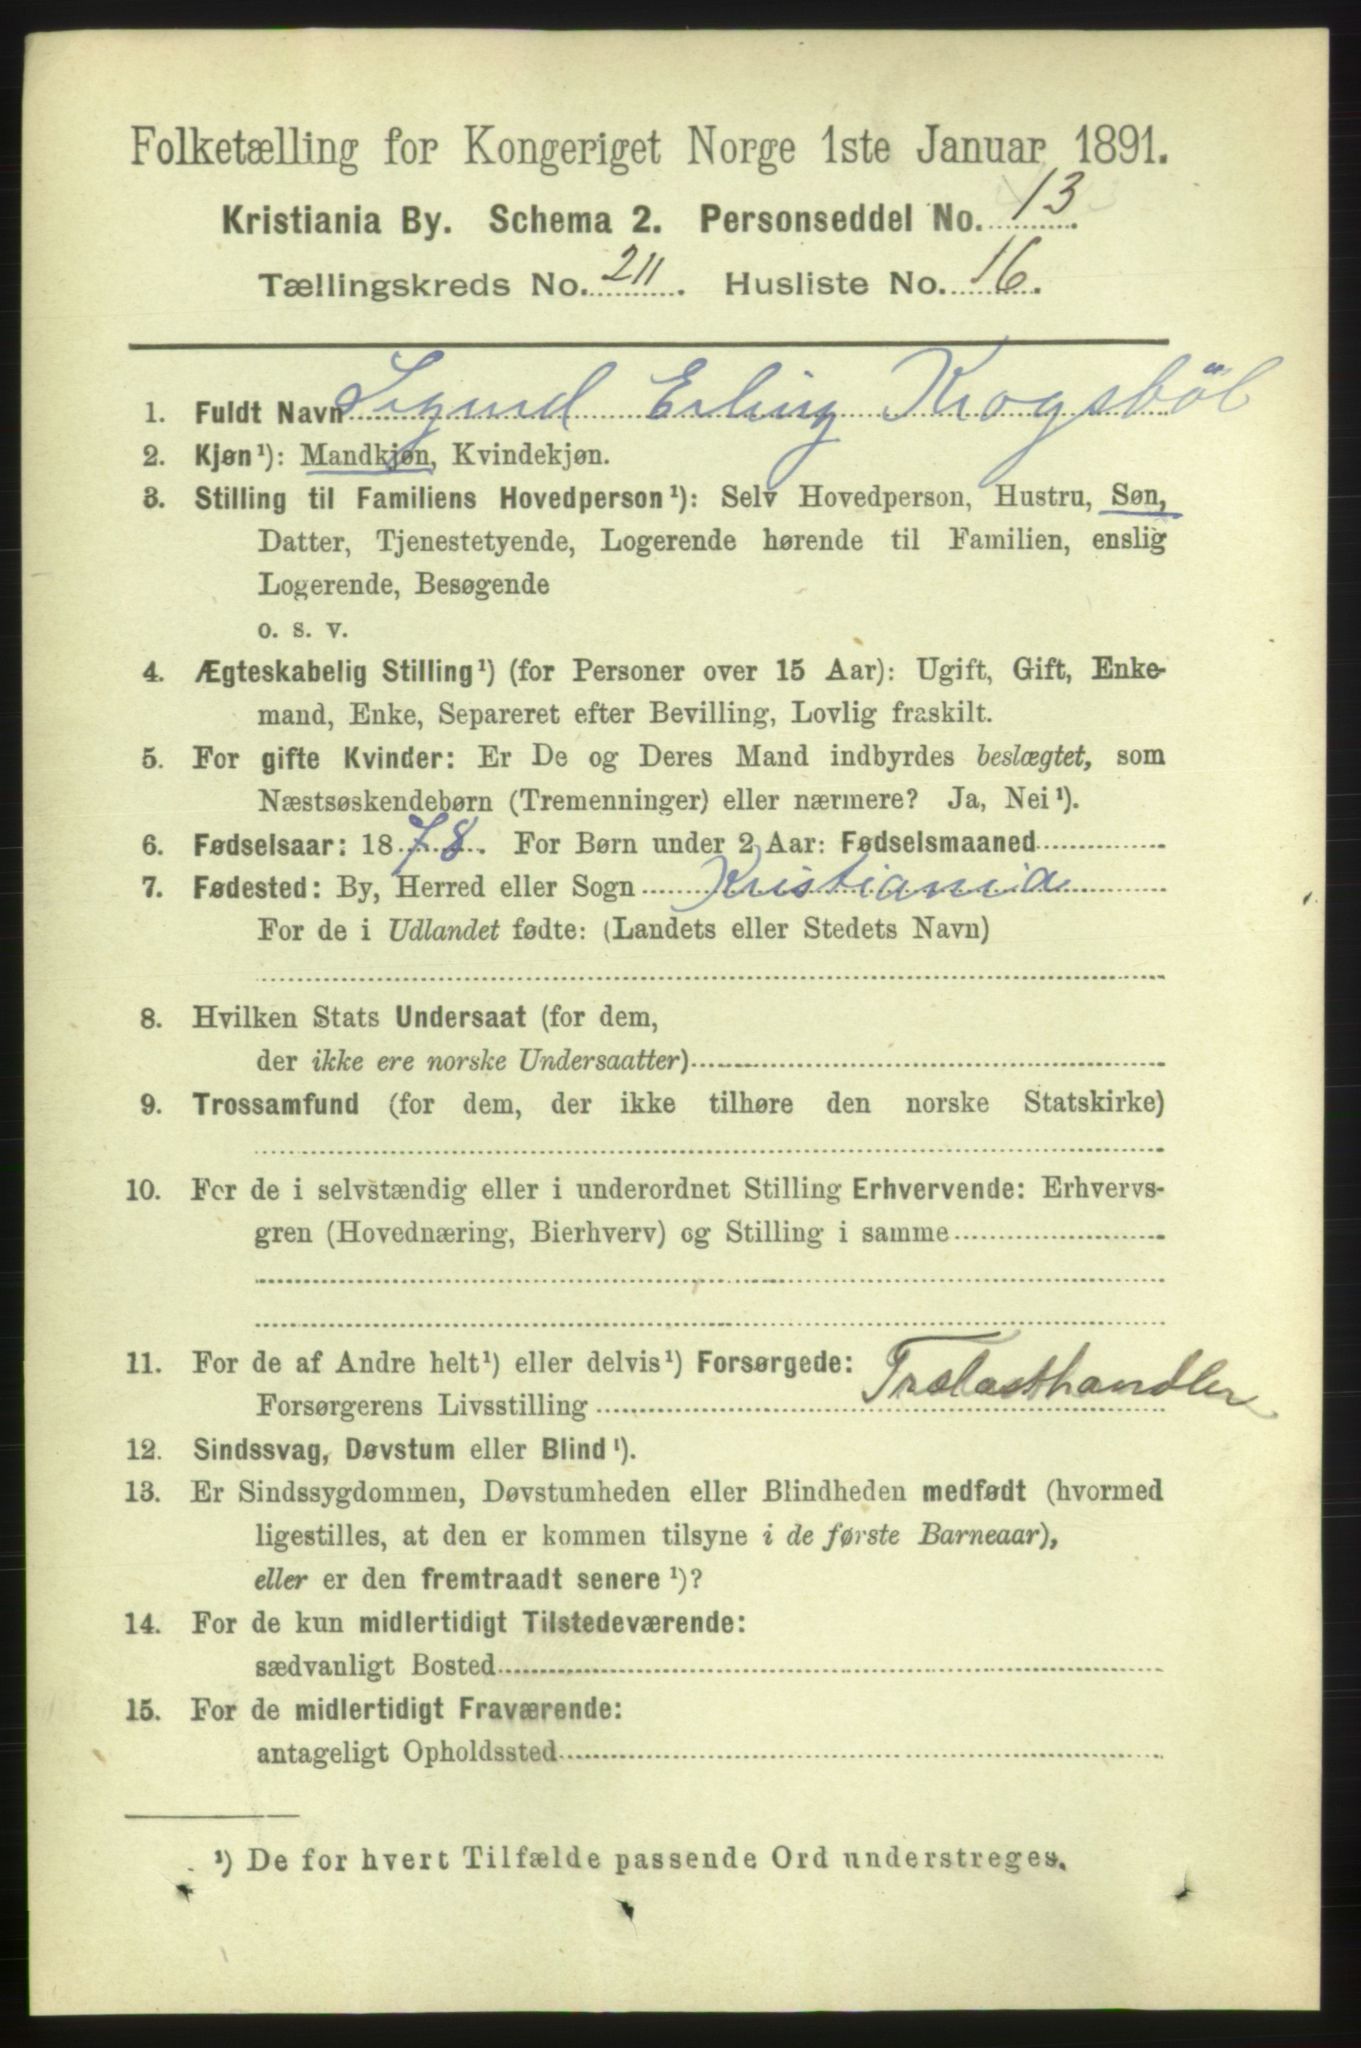 Folketælling for Kongeriget Norge 1ste Januar 1891.
Kristiania By. Schema 2. Personseddel No. 13
Tællingskreds No. 211. Husliste No. 16.
1. Fuldt Navn Sigurd Erling Krogsböl
2. Kjøn¹): Mandkjøn, Kvindekjøn.
3. Stilling til Familiens Hovedperson¹): Selv Hovedperson, Hustru, Søn,
Datter, Tjenestetyende, Logerende hørende til Familien, enslig
Logerende, Besøgende
o. s. v.
4. Ægteskabelig Stilling¹) (for Personer over 15 Aar): Ugift, Gift, Enke-
mand, Enke, Separeret efter Bevilling, Lovlig fraskilt.
5. For gifte Kvinder: Er De og Deres Mand indbyrdes beslægtet, som
Næstsøskendebørn (Tremenninger) eller nærmere? Ja, Nei¹).
6. Fødselsaar: 1878. For Børn under 2 Aar: Fødselsmaaned
7. Fødested: By, Herred eller Sogn Kristiania
For de i Udlandet fødte: (Landets eller Stedets Navn)
8. Hvilken Stats Undersaat (for dem,
der ikke ere norske Undersaatter)
9. Trossamfund (for dem, der ikke tilhøre den norske Statskirke)
10. For de i selvstændig eller i underordnet Stilling Erhvervende: Erhvervs-
gren (Hovednæring, Bierhverv) og Stilling i samme
11. For de af Andre helt¹) eller delvis¹) Forsørgede:
Forsørgerens Livsstilling Trælasthandler
12. Sindssvag, Døvstum eller Blind¹).
13. Er Sindssygdommen, Døvstumheden eller Blindheden medfødt (hvormed
ligestilles, at den er kommen tilsyne i de første Barneaar),
eller er den fremtraadt senere¹)?
14. For de kun midlertidigt Tilstedeværende:
sædvanligt Bosted
15. For de midlertidigt Fraværende:
antageligt Opholdssted
¹) De for hvert Tilfælde passende Ord understreges.